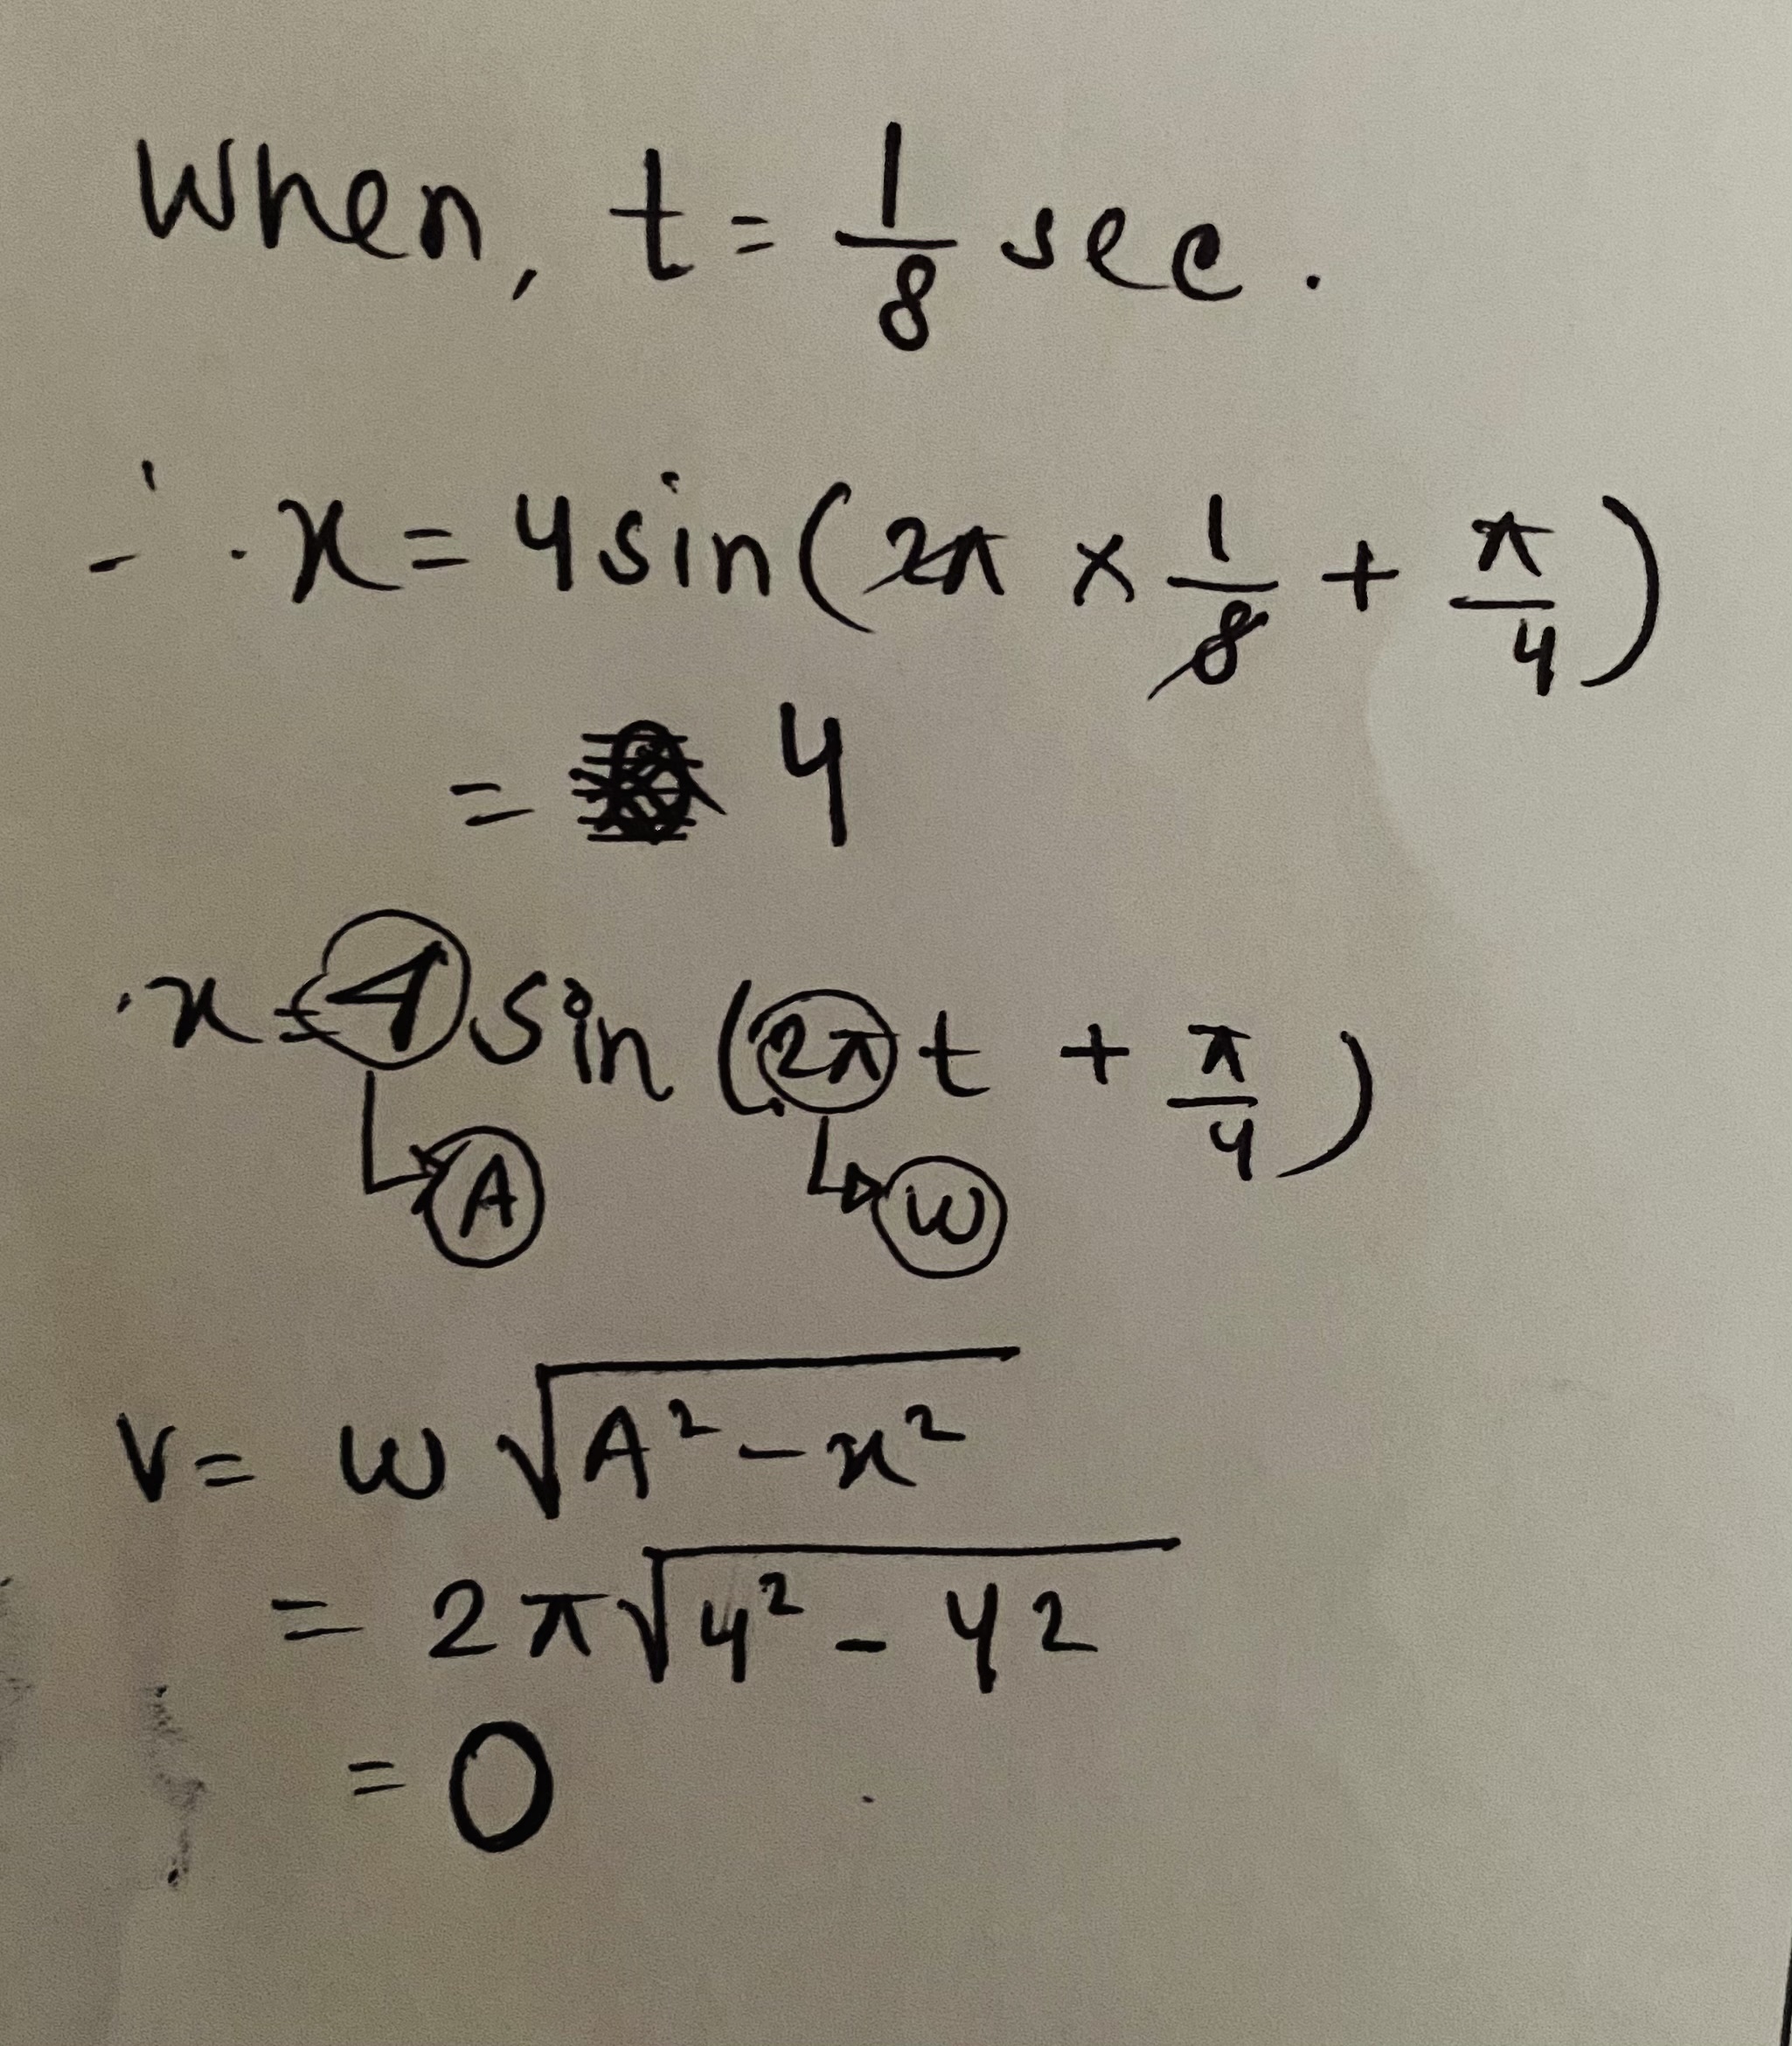 When, t = 1/8 sec.
∴ x = 4 sin(2π × 1/8 + π/4)
= 4
x = 4 sin (2π t + π/4)
A W
V = W √(A² - x²)
= 2π √(4² - 42)
= 0